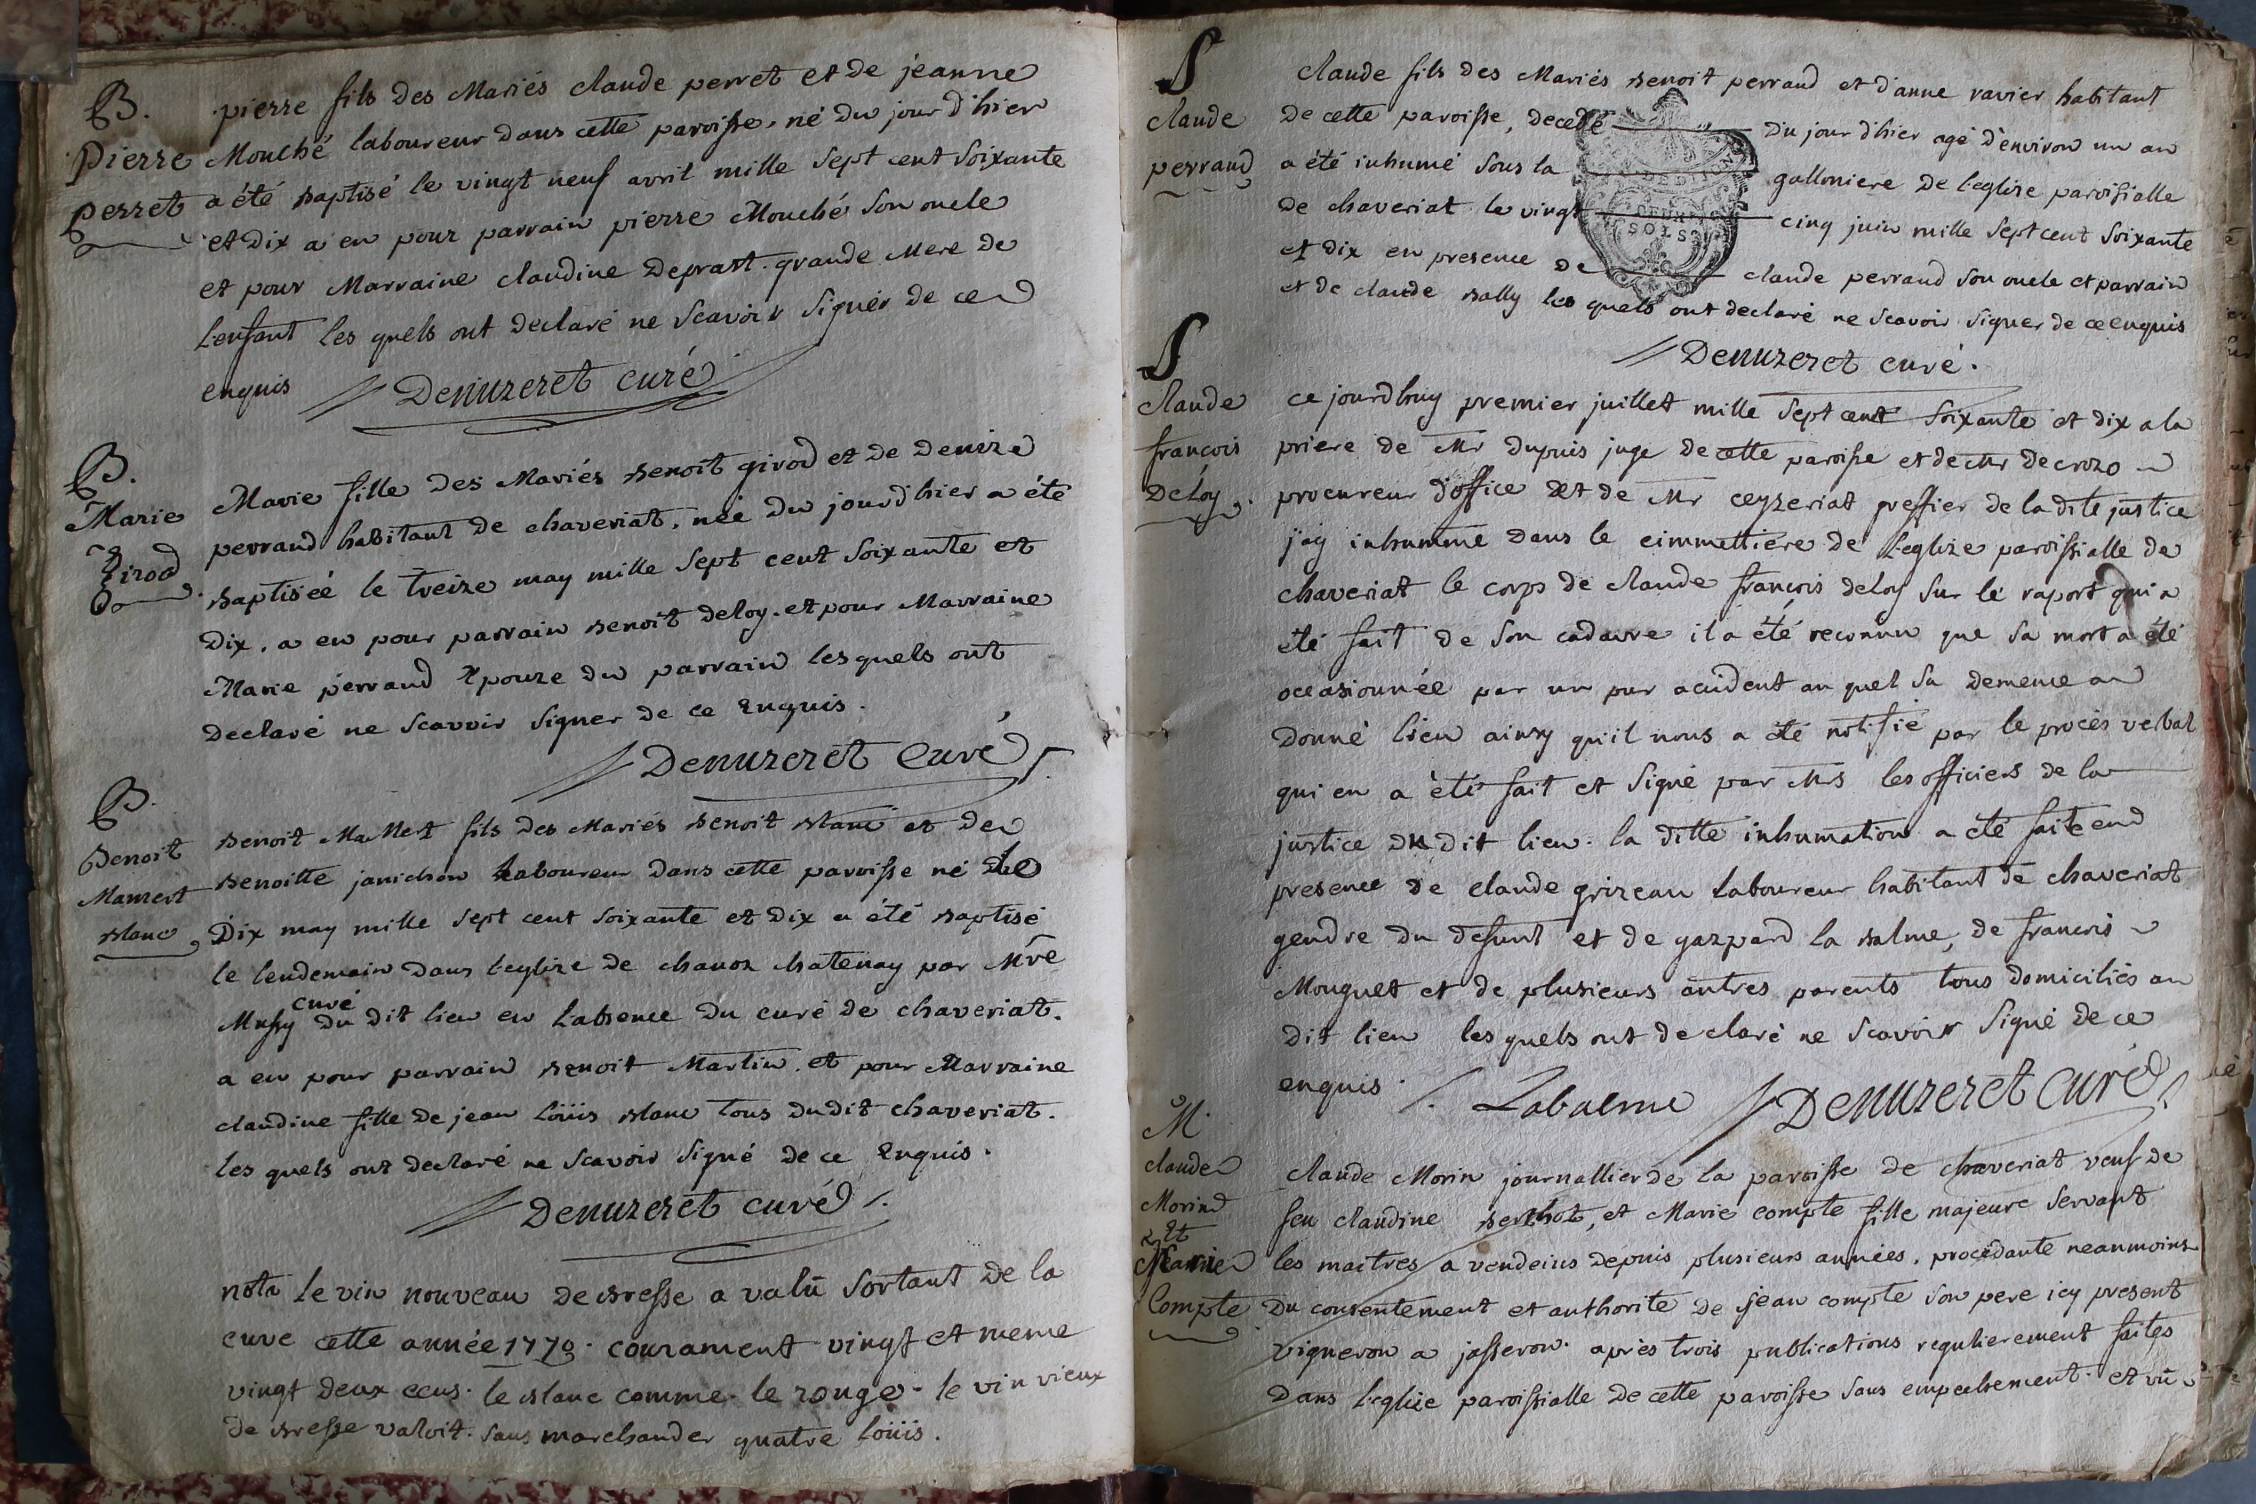 B.
Pierre
Perret
pierre fils des Mariés claude perret et de jeanne
Mouché laboureur dans cette paroisse, né du jour d'hier
a été baptisé le vingt neuf avril mille sept cent soixante
et dix a eu pour parrain pierre Mouché son oncle
et pour Marraine claudine Deprast grande Mere de
l'enfant les quels ont declaré ne scavoir signér de ce
enquis Denuzeret curé
B.
Marie
Girod
Marie fille des Mariés benoit girod et de denize
perraud habitant de chaveriat, née du jourd'hier a été
baptiséé le treize may mille sept cent soixante et
dix, a eu pour parrain benoit deloy. et pour Marraine
Marie perraud Epouze du parrain lesquels ont
declaré ne scavoir signer de ce Enquis.
Denuzeret Curé
B.
Benoit
Mamert
blanc
benoit Mamert fils des Mariés benoit blanc et de
benoitte janichon Laboureur dans cette paroisse né le
Dix may mille sept cent soixante et dix a été baptisé
le lendemain dans l'eglize de chanoz chatenay par Mre
curé
Mussy du dit lieu en l'absence du curé de chaveriat.
a eu pour parrain benoit Martin, et pour Marraine
claudine fille de jean loüis blanc tous dudit chaveriat.
les quels ont declaré ne scavoir signé de ce Enquis.
Denuzeret curé
nota le vin nouveau de bresse a valû sortant de la
cuve cette année 1770. courament vingt et meme
vingt deux ecus. le blanc comme le rouge. le vin vieux
de bresse valoit. sans marchander quatre loüis.
S
claude
perraud
claude fils des Mariés benoit perraud et d'anne ravier habitant
de cette paroisse, decedé du jour d'hier agé d'environ un an
a été inhumé sous la galloniere de l'eglize paroissialle
de chaveriat le vingt cinq juin mille sept cent soixante
et dix en presence de claude perraud son oncle et parrain
et de claude bally les quels ont declaré ne scavoir signer de ce enquis
SOLS
Denuzeret curé.
S
Claude
françois
Deloy.
ce jourdhuy premier juillet mille sept cent soixante et dix a la
priere de Mr Dupuis juge de cette paroisse et de Mr Decrozo
procureur d'office et de Mr ceyzeriat greffier de la dite justice
j'ay inhummé dans le cimmettiere de l'eglize paroissialle de
chaveriat le corps de claude françois deloy sur le raport qui a
été fait de son cadavre il a été reconnu que sa mort a été
occasionnée par un pur accident au quel sa demence a
donné lieu ainsy qu'il nous a été notifié par le procès verbal
qui en a été fait et signé par Mrs les officiers de la
justice du dit lieu. la ditte inhumation a eté faite en
presence de claude grizeau laboureur habitant de chaveriat
gendre du defunt et de gazpard la balme, de francois
Mouguet et de plusieurs autres parents tous domiciliés au
dit lieu les quels ont declaré ne scavoir signé de ce
enquis. Labalme Denuzeret curé
M.
claude
Morin
Et
Marie
Compte
claude Morin journallier de la paroisse de chaveriat veuf de
feu claudine berthot, et Marie compte fille majeure servant
les maitres a vendeins depuis plusieurs années, procedante neanmoins
du consentement et authorité de jean compte son pere icy present
vigneron a jasseron. après trois publications regulierement faites
dans l'eglize paroissialle de cette paroisse sans empechement. et vû